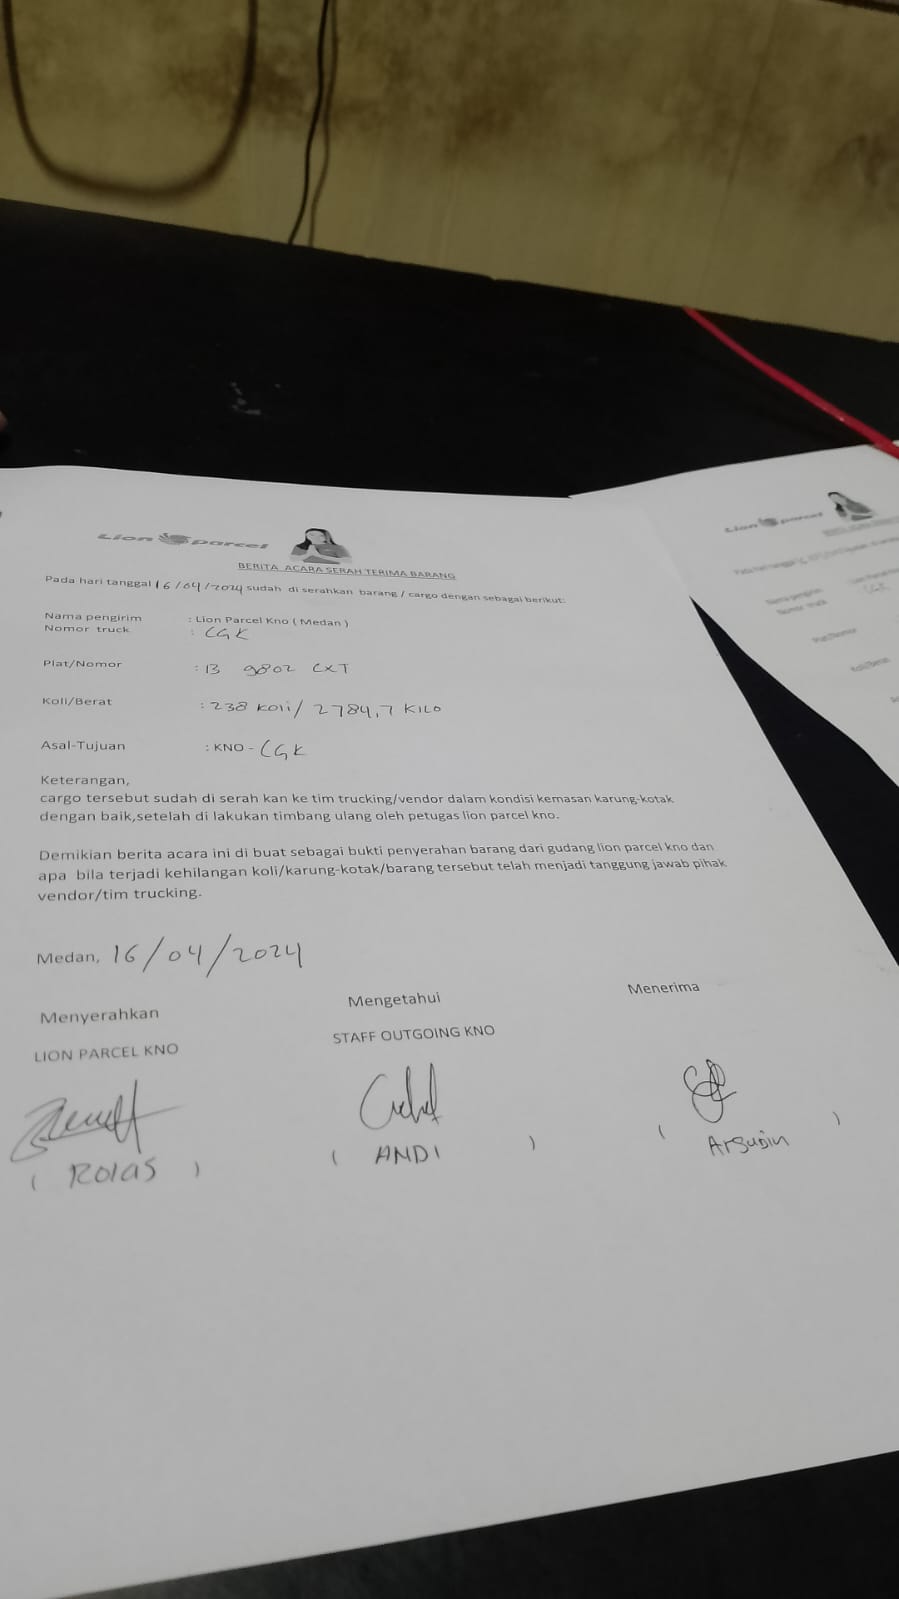 Lion parcel
BERITA ACARA SERAH TERIMA BARANG
Pada hari tanggal 16/04/2024 sudah di serahkan barang / cargo dengan sebagai berikut:
Nama pengirim : Lion Parcel Kno ( Medan )
Nomor truck : CGK
Plat/Nomor : B 9802 CXT
Koli/Berat : 238 koli / 2784,7 KILO
Asal-Tujuan : KNO - CGK
Keterangan,
cargo tersebut sudah di serah kan ke tim trucking/vendor dalam kondisi kemasan karung-kotak
dengan baik,setelah di lakukan timbang ulang oleh petugas lion parcel kno.
Demikian berita acara ini di buat sebagai bukti penyerahan barang dari gudang lion parcel kno dan
apa bila terjadi kehilangan koli/karung-kotak/barang tersebut telah menjadi tanggung jawab pihak
vendor/tim trucking.
Medan, 16/04/2024
Menyerahkan Mengetahui Menerima
LION PARCEL KNO STAFF OUTGOING KNO
( ROLAS ) ( ANDI ) ( Arsudin )
Lion parcel
Nama pengirim
Nomor truck CGK
Plat/Nomor
Koli/Berat